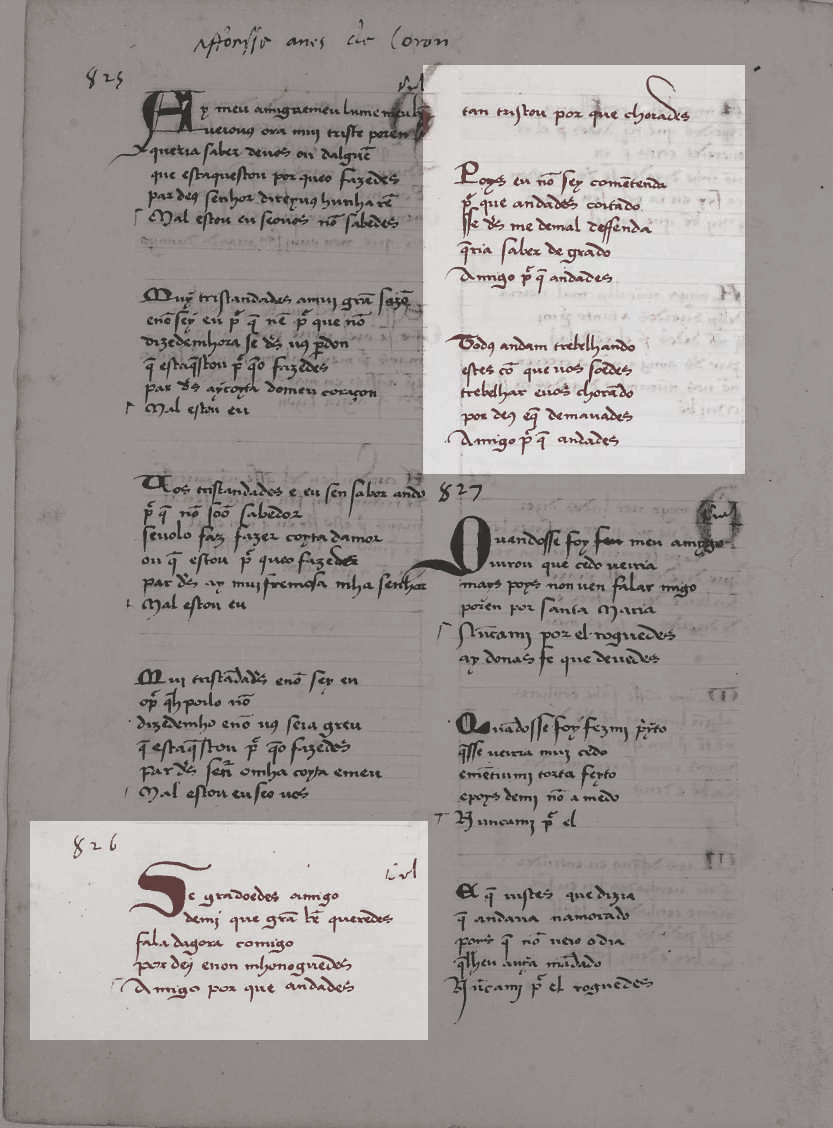 Affonsse anes de Coton
825
Ay meu amigu emeu lume meu bẽ
ueiouos ora mui triste poren
queria saber deuos ou dalguẽ
que estaquestou por queo fazedes
par deꝯ senhor direyuꝯ hunha rẽ
Mal estou eu seouos nõ sabedes
Muy tristandades amui grã sazõ
enõ sey eu pᷓ q̄ nẽ pᷓ que nõ
dizedemhora se d̄s uꝯ ꝑdon
q̄ estaq̄stou pᷓ q̄o fazedes
par d̄s ay coyta domeu coraçon
Mal estou eu
Uos tristandades e eu sen sabor ando
pᷓ q̄ nõ soõ sabedor
seuolo faz fazer coyta damor
ou q̄ estou pᷓ queo fazedes
par d̄s ay mui fremosa mha senhor
Mal estou eu
Mui tristãdad̄s enõ sey eu
opᷓ q̄h poilo nõ
dizedemho enõ uꝯ seia greu
q̄ estaq̄stou pᷓ q̄o fazedes
par d̄s señr omha coyta emeu
Mal estou eu seo uos
826
Se gradoedes amigo
demi que grã bẽ queredes
falad agora comigo
por deꝯ enon mhoneguedes
Amigo por que andades
tan tristou por que chorades
Poys eu nõ sey comẽtenda
pᷓ que andades coitado
sse d̄s me demal deffenda
q̄ria saber de grado
Amigo pᷓ q̄ andades
Todꝯ andam trebelhando
estes cõ que uos soedes
trebelhar euos chorãdo
por deꝯ eq̄ demãdades
Amigo pᷓ q̄ andades
827
Quandosse foy meu amigo
iurou que cedo ueiria
mays poys non uen falar migo
poren por santa Maria
Nũcami por el roguedes
ay donas fe que deuedes
Quãdosse foy fezmi p̄yto
q̄sse ueiria mui cedo
emẽtiumi torta feyto
epoys demi nõ a medo
Nuncami pᷓ el
El q̄ uistes que dizia
q̄ andaua namorado
poys q̄ nõ ueio odia
q̄lheu auia mãdado
Nũcami pᷓ el roguedes